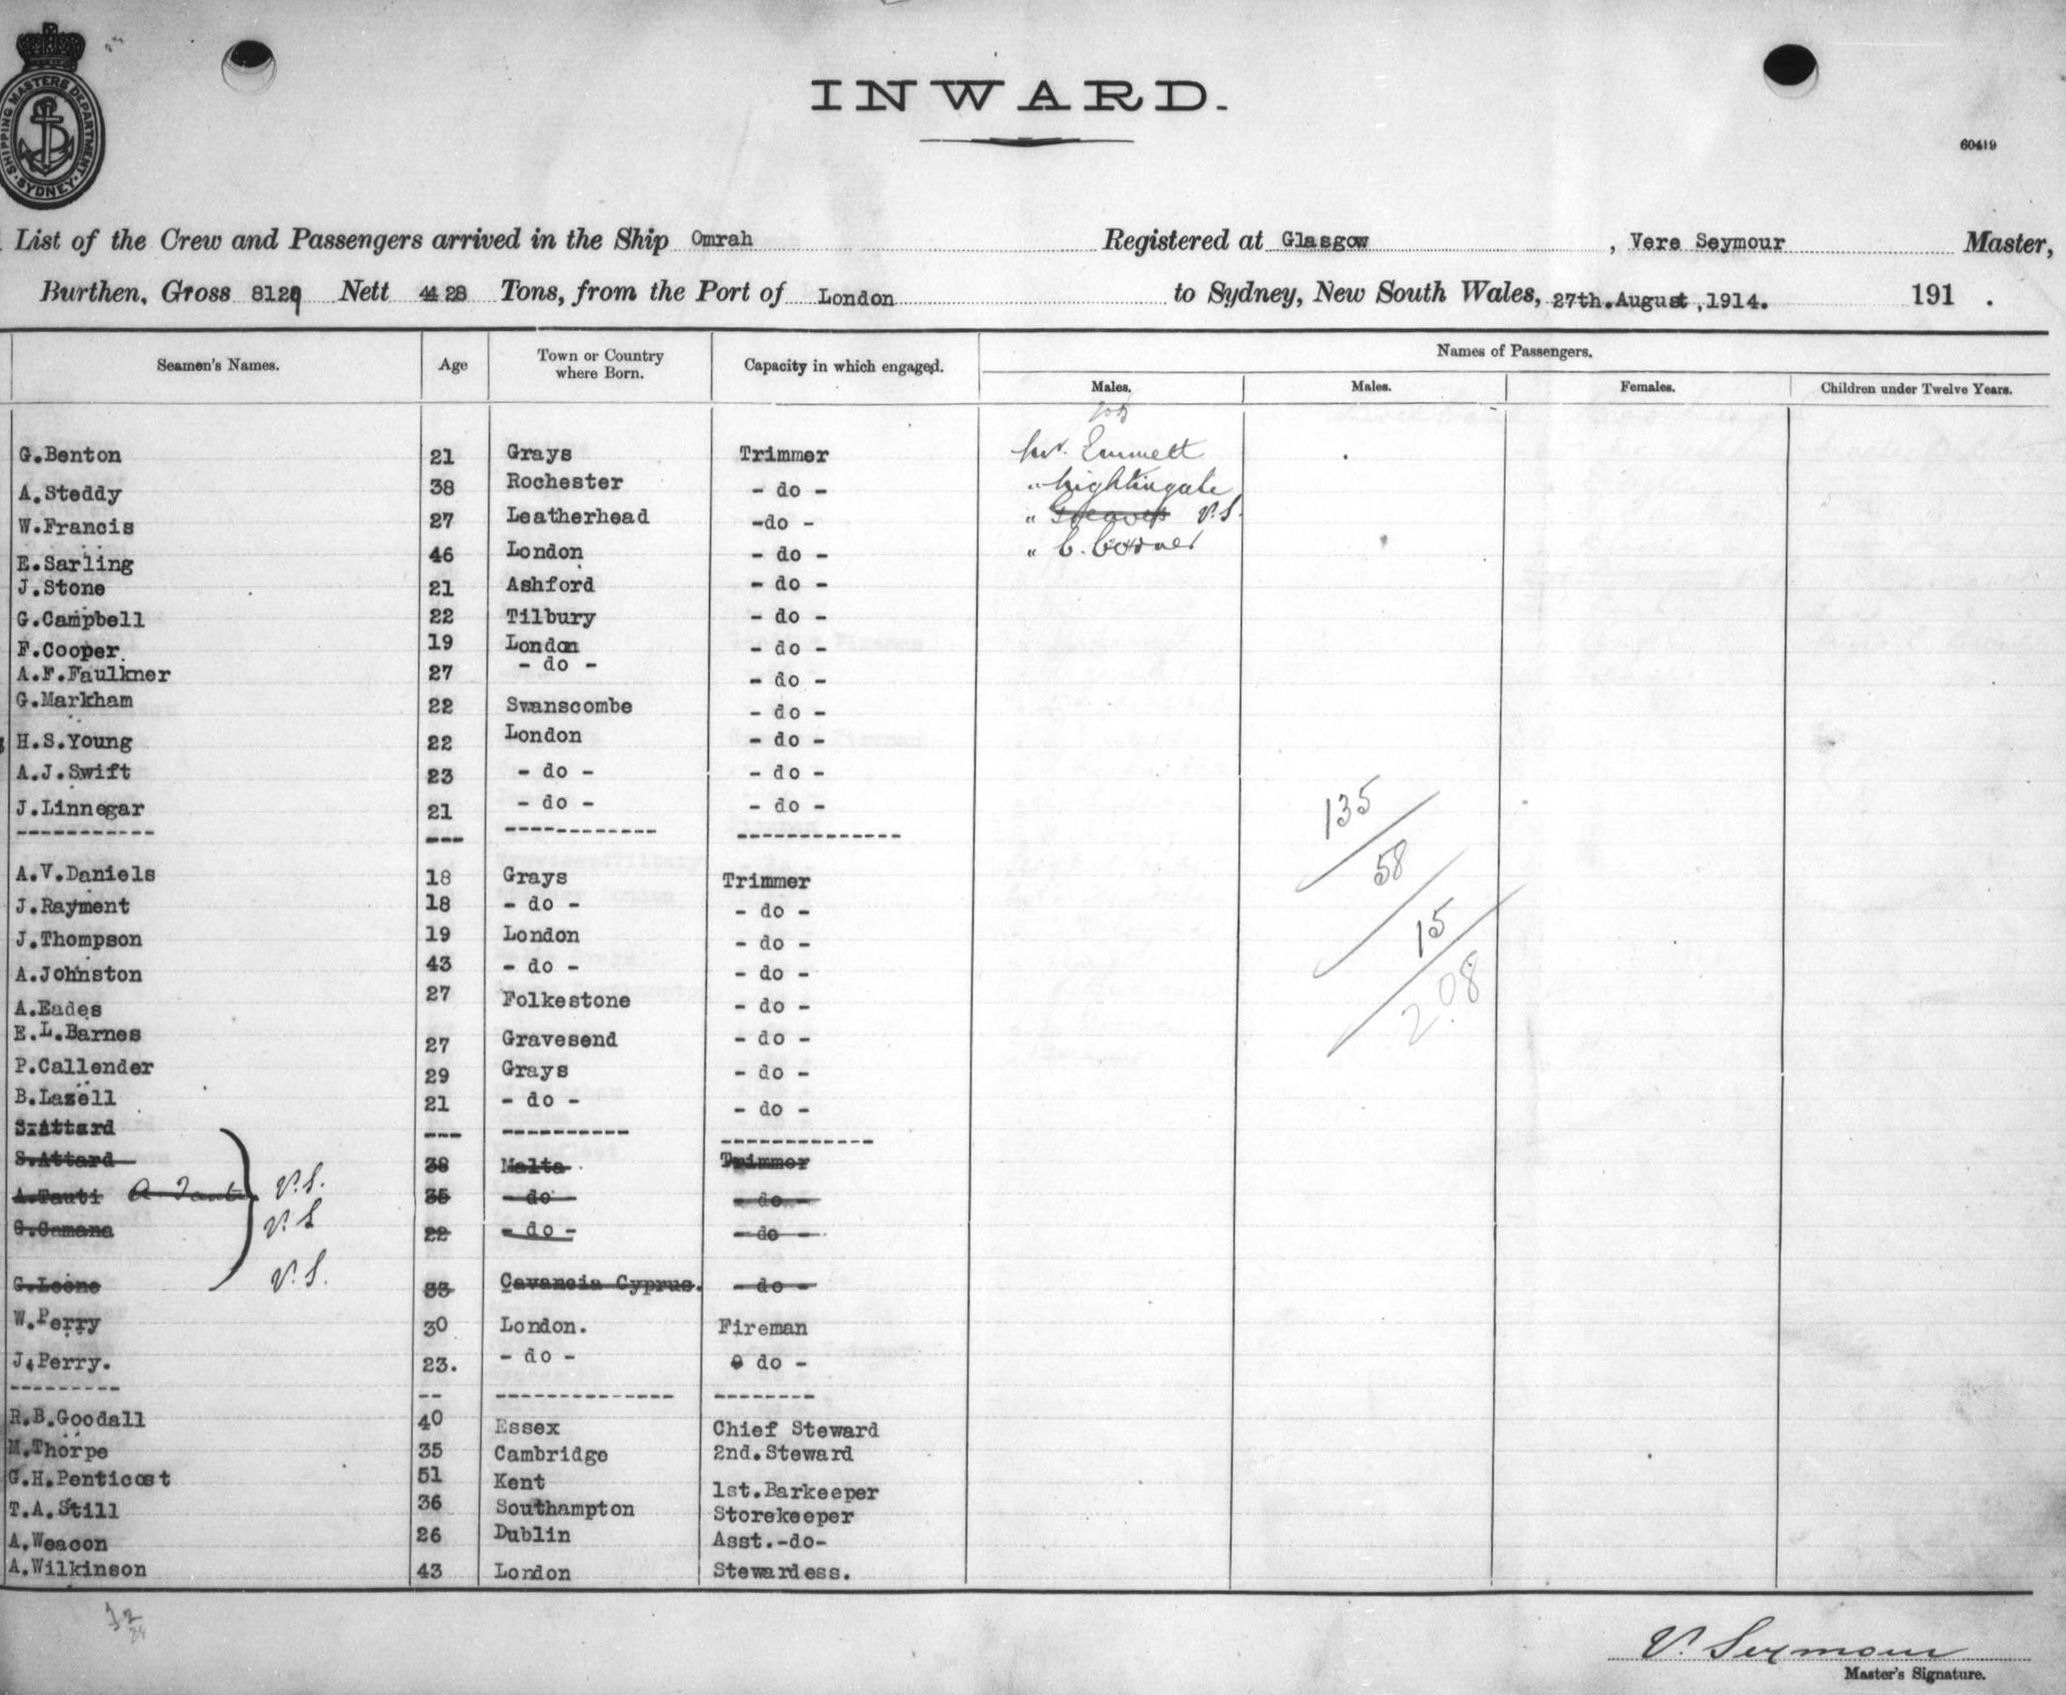 SHIPPING MASTERS DEPARTMENT. SYDNEY.
INWARD.
60419
List of the Crew and Passengers arrived in the Ship Omrah Registered at Glasgow, Vere Seymour Master,
Burthen, Gross 8129 Nett 4428 Tons, from the Port of London to Sydney, New South Wales, 27th.August,1914. 191 .
Seamen's Names. Age Town or Country where Born. Capacity in which engaged. Names of Passengers.
Males. Males. Females. Children under Twelve Years.
G.Benton 21 Grays Trimmer Mr. Emmett
A.Steddy 38 Rochester - do - " Nightingale
W.Francis 27 Leatherhead -do - " V.S.
E.Sarling 46 London - do - " C. Corner
J.Stone 21 Ashford - do -
G.Campbell 22 Tilbury - do -
F.Cooper. 19 London - do -
A.F.Faulkner 27 - do - - do -
G.Markham 22 Swanscombe - do -
H.S.Young 22 London - do -
A.J.Swift 23 - do - - do -
J.Linnegar 21 - do - - do -
135
58
15
208
A.V.Daniels 18 Grays Trimmer
J.Rayment 18 - do - - do -
J.Thompson 19 London - do -
A.Johnston 43 - do - - do -
A.Eades 27 Folkestone - do -
E.L.Barnes 27 Gravesend - do -
P.Callender 29 Grays - do -
B.Lazell 21 - do - - do -
S.Attard
S.Attard 38 Malta Trimmer
A.Tauti A Tauti V.S. 35 - do - - do -
G.Camana V.S 22 - do - - do -
G.Leone V.S. 33 Cavancia Cyprus. - do -
W.Perry 30 London. Fireman
J.Perry. 23. - do - do -
R.B.Goodall 40 Essex Chief Steward
M.Thorpe 35 Cambridge 2nd.Steward
G.H.Penticost 51 Kent 1st.Barkeeper
T.A.Still 36 Southampton Storekeeper
A.Weacon 26 Dublin Asst.-do-
A.Wilkinson 43 London Stewardess.
V. Seymour
Master's Signature.